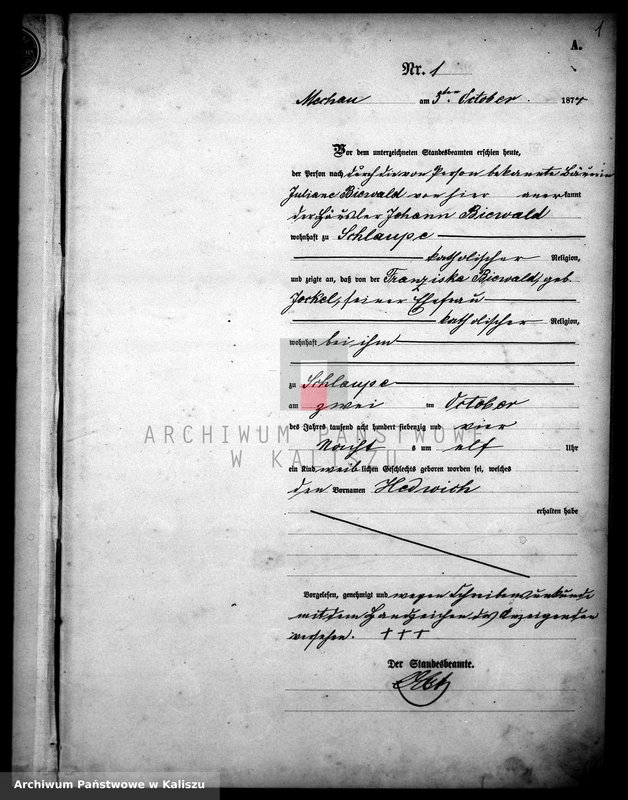 1
A.
Nr. 1
Mechau am 3ten October 1874
Vor dem unterzeichneten Standesbeamten erschien heute,
der Person nach durch die von Person bekannte Bäuerin
Juliane Biewald von hier anerkannt
der Häusler Johann Biewald
wohnhaft zu Schlaupe
katholischer Religion,
und zeigte an, daß von der Franziska Biewald, geb
Jockel, seiner Ehefrau
katholischer Religion,
wohnhaft bei ihm
zu Schlaupe
am zwei ten October
des Jahres tausend acht hundert siebenzig und vier
Nacht s um elf Uhr
ein Kind weiblichen Geschlechts geboren worden sei, welches
den Vornamen Hedwich
erhalten habe
Vorgelesen, genehmigt und wegen Schreibensunkunde
mit dem Handzeichen des Anzeigenden
versehen. +++
Der Standesbeamte.
ARCHIWUM PAŃSTWOWE
W KALISZU
Archiwum Państwowe w Kaliszu